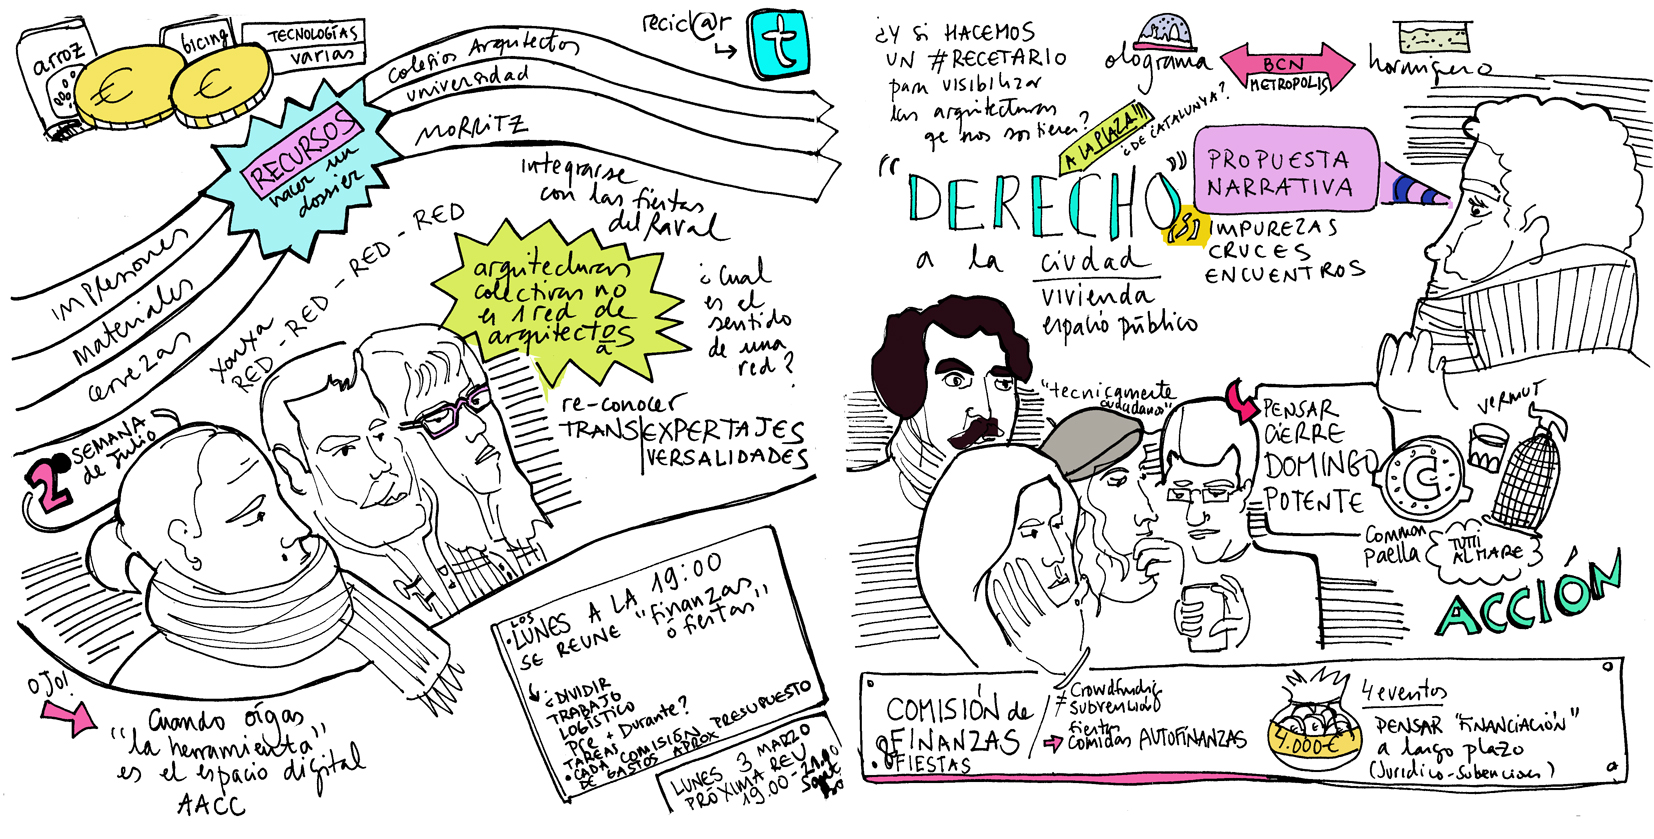 arroz
€
€
bicing
TECNOLOGÍAS
varias
RECURSOS
hacer un
dossier
colegios Arquitectos
universidad
MORRITZ
recicl@r
t
impresiones
materiales
cervezas
integrarse
con las fiestas
del Raval
xarxa
RED - RED - RED - RED
arquitecturas
colectivas no
es 1 red de
arquitectos
a
¿Cual
es el
sentido
de una
red?
re-conocer
TRANS EXPERTAJES
VERSALIDADES
2º SEMANA
de Julio
OJO!
Cuando oigas
"la herramienta"
es el espacio digital
AACC
LOS
• LUNES A LA 19:00
SE REUNE "finanzas
o fiestas"
¿DIVIDIR
TRABAJO
LOGÍSTICO
Pre + Durante?
TAREAS
• CADA COMISIÓN PRESUPUESTO
DE GASTOS APROX
LUNES 3 MARZO
PRÓXIMA REU
19:00 - 21:00
¿Y SI HACEMOS
UN #RECETARIO
para visibilizar
las arquitecturas
qe nos sostienen?
olograma
BCN
METROPOLIS
hormiguero
A LA PLAZA!!
¿DE CATALUNYA?
"DERECHO(S)"
a la ciudad
vivienda
espacio público
PROPUESTA
NARRATIVA
IMPUREZAS
CRUCES
ENCUENTROS
"tecnicamente
ciudadanos"
PENSAR
CIERRE
DOMINGO
POTENTE
VERMUT
C
Common
Paella
TUTTI
AL MARE
ACCIÓN
COMISIÓN de
FINANZAS
o
FIESTAS
≠ Crowdfunding
≠ subvención
fiestas
comidas AUTOFINANZAS
4.000€
4 eventos
PENSAR "FINANCIACIÓN"
a largo plazo
(Jurídico-Subenciones)